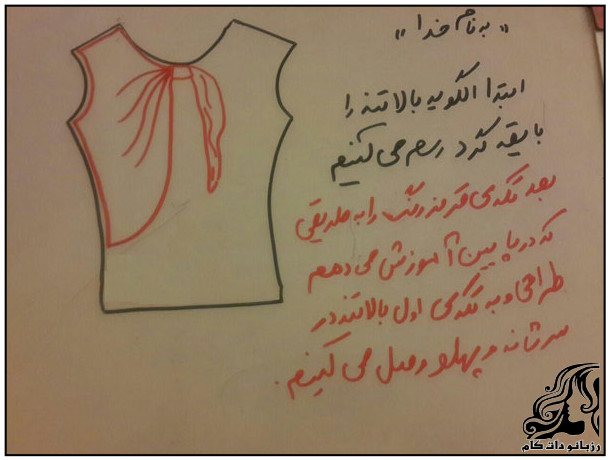 « به نام خدا »
ابتدا الگوی بالاتنه را
با یقه گرد رسم می کنیم
بعد تکه ی قرمز رنگ را به طریقی
که در پایین آموزش می دهم
طراحی و به تکه ی اول بالاتنه در
سرشانه و پهلو وصل می کنیم.
رزبانو دات کام